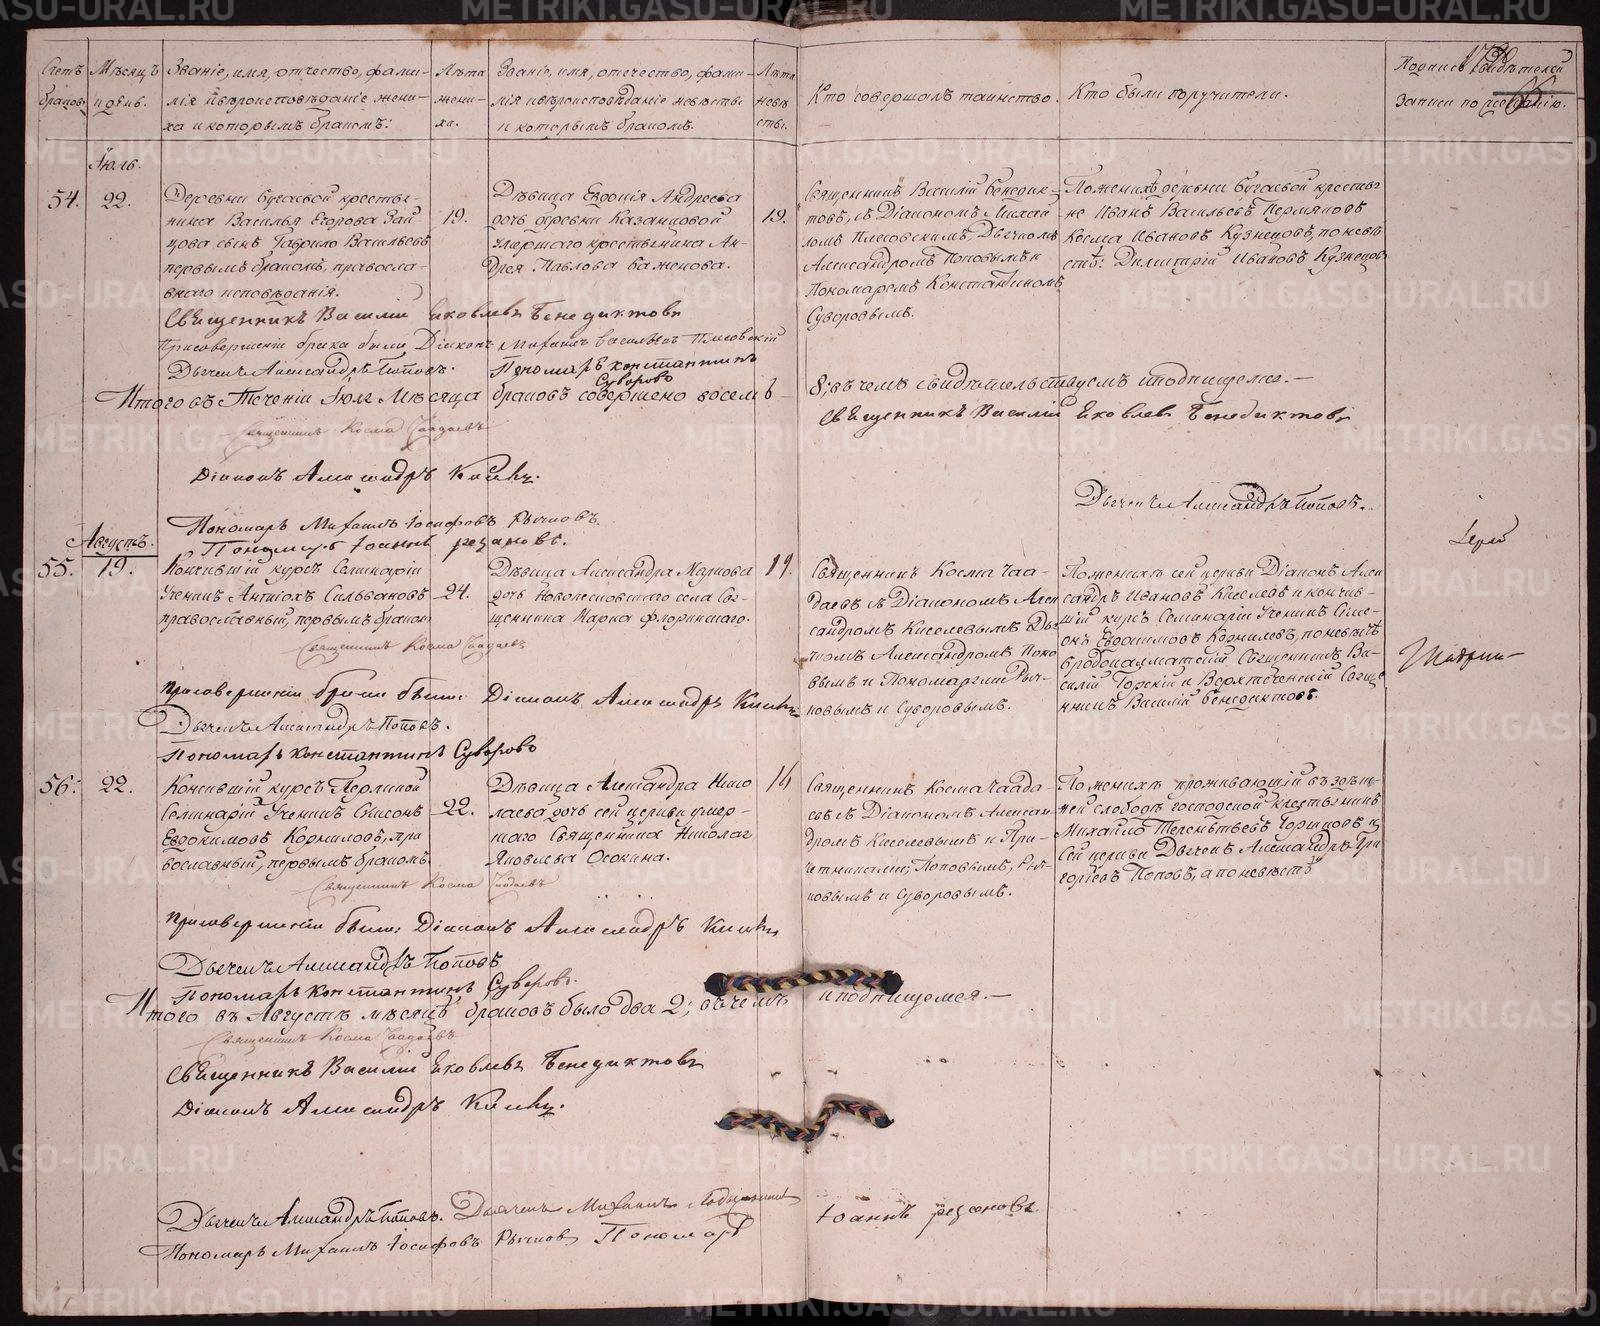 Счетъ браковъ.
Мѣсяцъ и день.
Званіе, имя, отчество, фами-
лія и вѣроисповѣданіе жени-
ха и которымъ бракомъ:
Лѣта
жени-
ха.
Званіе, имя, отечество, фами-
лія и вѣроисповѣданіе невѣсты
и которымъ бракомъ.
Лѣта
невѣ
сты.
Кто совершалъ таинство.
Кто были поручители.
Подпись свидѣтелей
записи по желанію.
Іюль.
54.
22.
Деревни Бугаевой крестья-
нина Василья Егорова Зай
цова сынъ Гаврило Васильевъ
первымъ бракомъ, правосла-
внаго исповѣданія.
19.
Дѣвица Евдокія Андреева
дочь деревни Казанцовой
умершаго крестьянина Ан-
дрея Павлова Баженова.
19.
Священникъ Василій Бенедик-
товъ, съ Діакономъ Михаи
ломъ Плѣсовскимъ, Дьячкомъ
Александромъ Поповымъ и
Пономаремъ Константиномъ
Суворовымъ.
По женихѣ деревни Бугаевой крестья
не Иванъ Васильевъ Пермяковъ
Косма Ивановъ Кузнецовъ, по невѣ
стѣ: Димитрій Ивановъ Кузнецовъ
Священникъ Василій Яковлевъ Бенедиктовъ
При совершеніи брака были Діаконъ Михаилъ Васильевъ Плѣсовскій
Дьячекъ Александръ Поповъ.
Пономарь Константинъ
Суворовъ
Итого въ теченіи Іюля мѣсяца браковъ совершено восемь
8; въ чемъ свидѣтельствуемъ и подпишемся.—
Священникъ Косма Чаадаевъ
Священникъ Василій Яковлевъ Бенедиктовъ
Діаконъ Александръ Киселевъ.
Дьячекъ Александръ Поповъ.
Пономарь Михаилъ Іосифовъ Рычковъ.
Пономарь Іоаннъ Резановъ.
Августъ.
55.
19.
Кончившій курсъ Семинаріи
Ученикъ Антіохъ Сильвановъ
православный, первымъ бракомъ
24.
Дѣвица Александра Маркова
дочь Новопесковскаго села Свя-
щенника Марка Флоринскаго.
19.
Священникъ Косма Чаа-
даевъ съ Діакономъ Алек
сандромъ Киселевымъ Дья
чкомъ Александромъ Попо
вымъ и Пономарями Рыч-
ковымъ и Суворовымъ.
По женихѣ сей церкви Діаконъ Алек
сандръ Ивановъ Киселевъ и кончив-
шій курсъ Семинаріи Ученикъ Симе-
онъ Евдокимовъ Кормилевъ, по невѣстѣ
Бродокалматскій Священникъ Ва-
силій Горскій и Верхтеченскій Свяще
нникъ Василій Бенедиктовъ.
Священникъ Косма Чаадаевъ
При совершеніи брака были: Діаконъ Александръ Киселевъ
Дьячекъ Александръ Поповъ.
Пономарь Константинъ Суворовъ
56.
22.
Кончившій курсъ Пермской
Семинаріи Ученикъ Симеонъ
Евдокимовъ Кормилевъ, пра
вославный, первымъ бракомъ.
22.
Дѣвица Александра Нико
лаева дочь сей церкви умер-
шаго Священника Николая
Яковлева Осокина.
16
Священникъ Косма Чаада
евъ съ Діакономъ Алексан
дромъ Киселевымъ и При-
четниками: Поповымъ, Рыч-
ковымъ и Суворовымъ.
По женихѣ проживающій въ здѣш-
ней слободѣ господской крестьянинъ
Михайло Терентьевъ Горшковъ и
сей церкви Дьячекъ Александръ Гри
горьевъ Поповъ, а по невѣстѣ
Священникъ Косма Чаадаевъ
При совершеніи были: Діаконъ Александръ Киселевъ
Дьячекъ Александръ Поповъ
Пономарь Константинъ Суворовъ.
Итого въ Августѣ мѣсяцѣ браковъ было два 2; въ чемъ и подпишемся.—
Священникъ Косма Чаадаевъ
Священникъ Василій Яковлевъ Бенедиктовъ
Діаконъ Александръ Киселевъ.
Дьячекъ Александръ Поповъ. Дьячекъ Михаилъ
Пономарь Михаилъ Іосифовъ Рычковъ Пономарь Іоаннъ Резановъ
METRIKI.GASO-URAL.RU